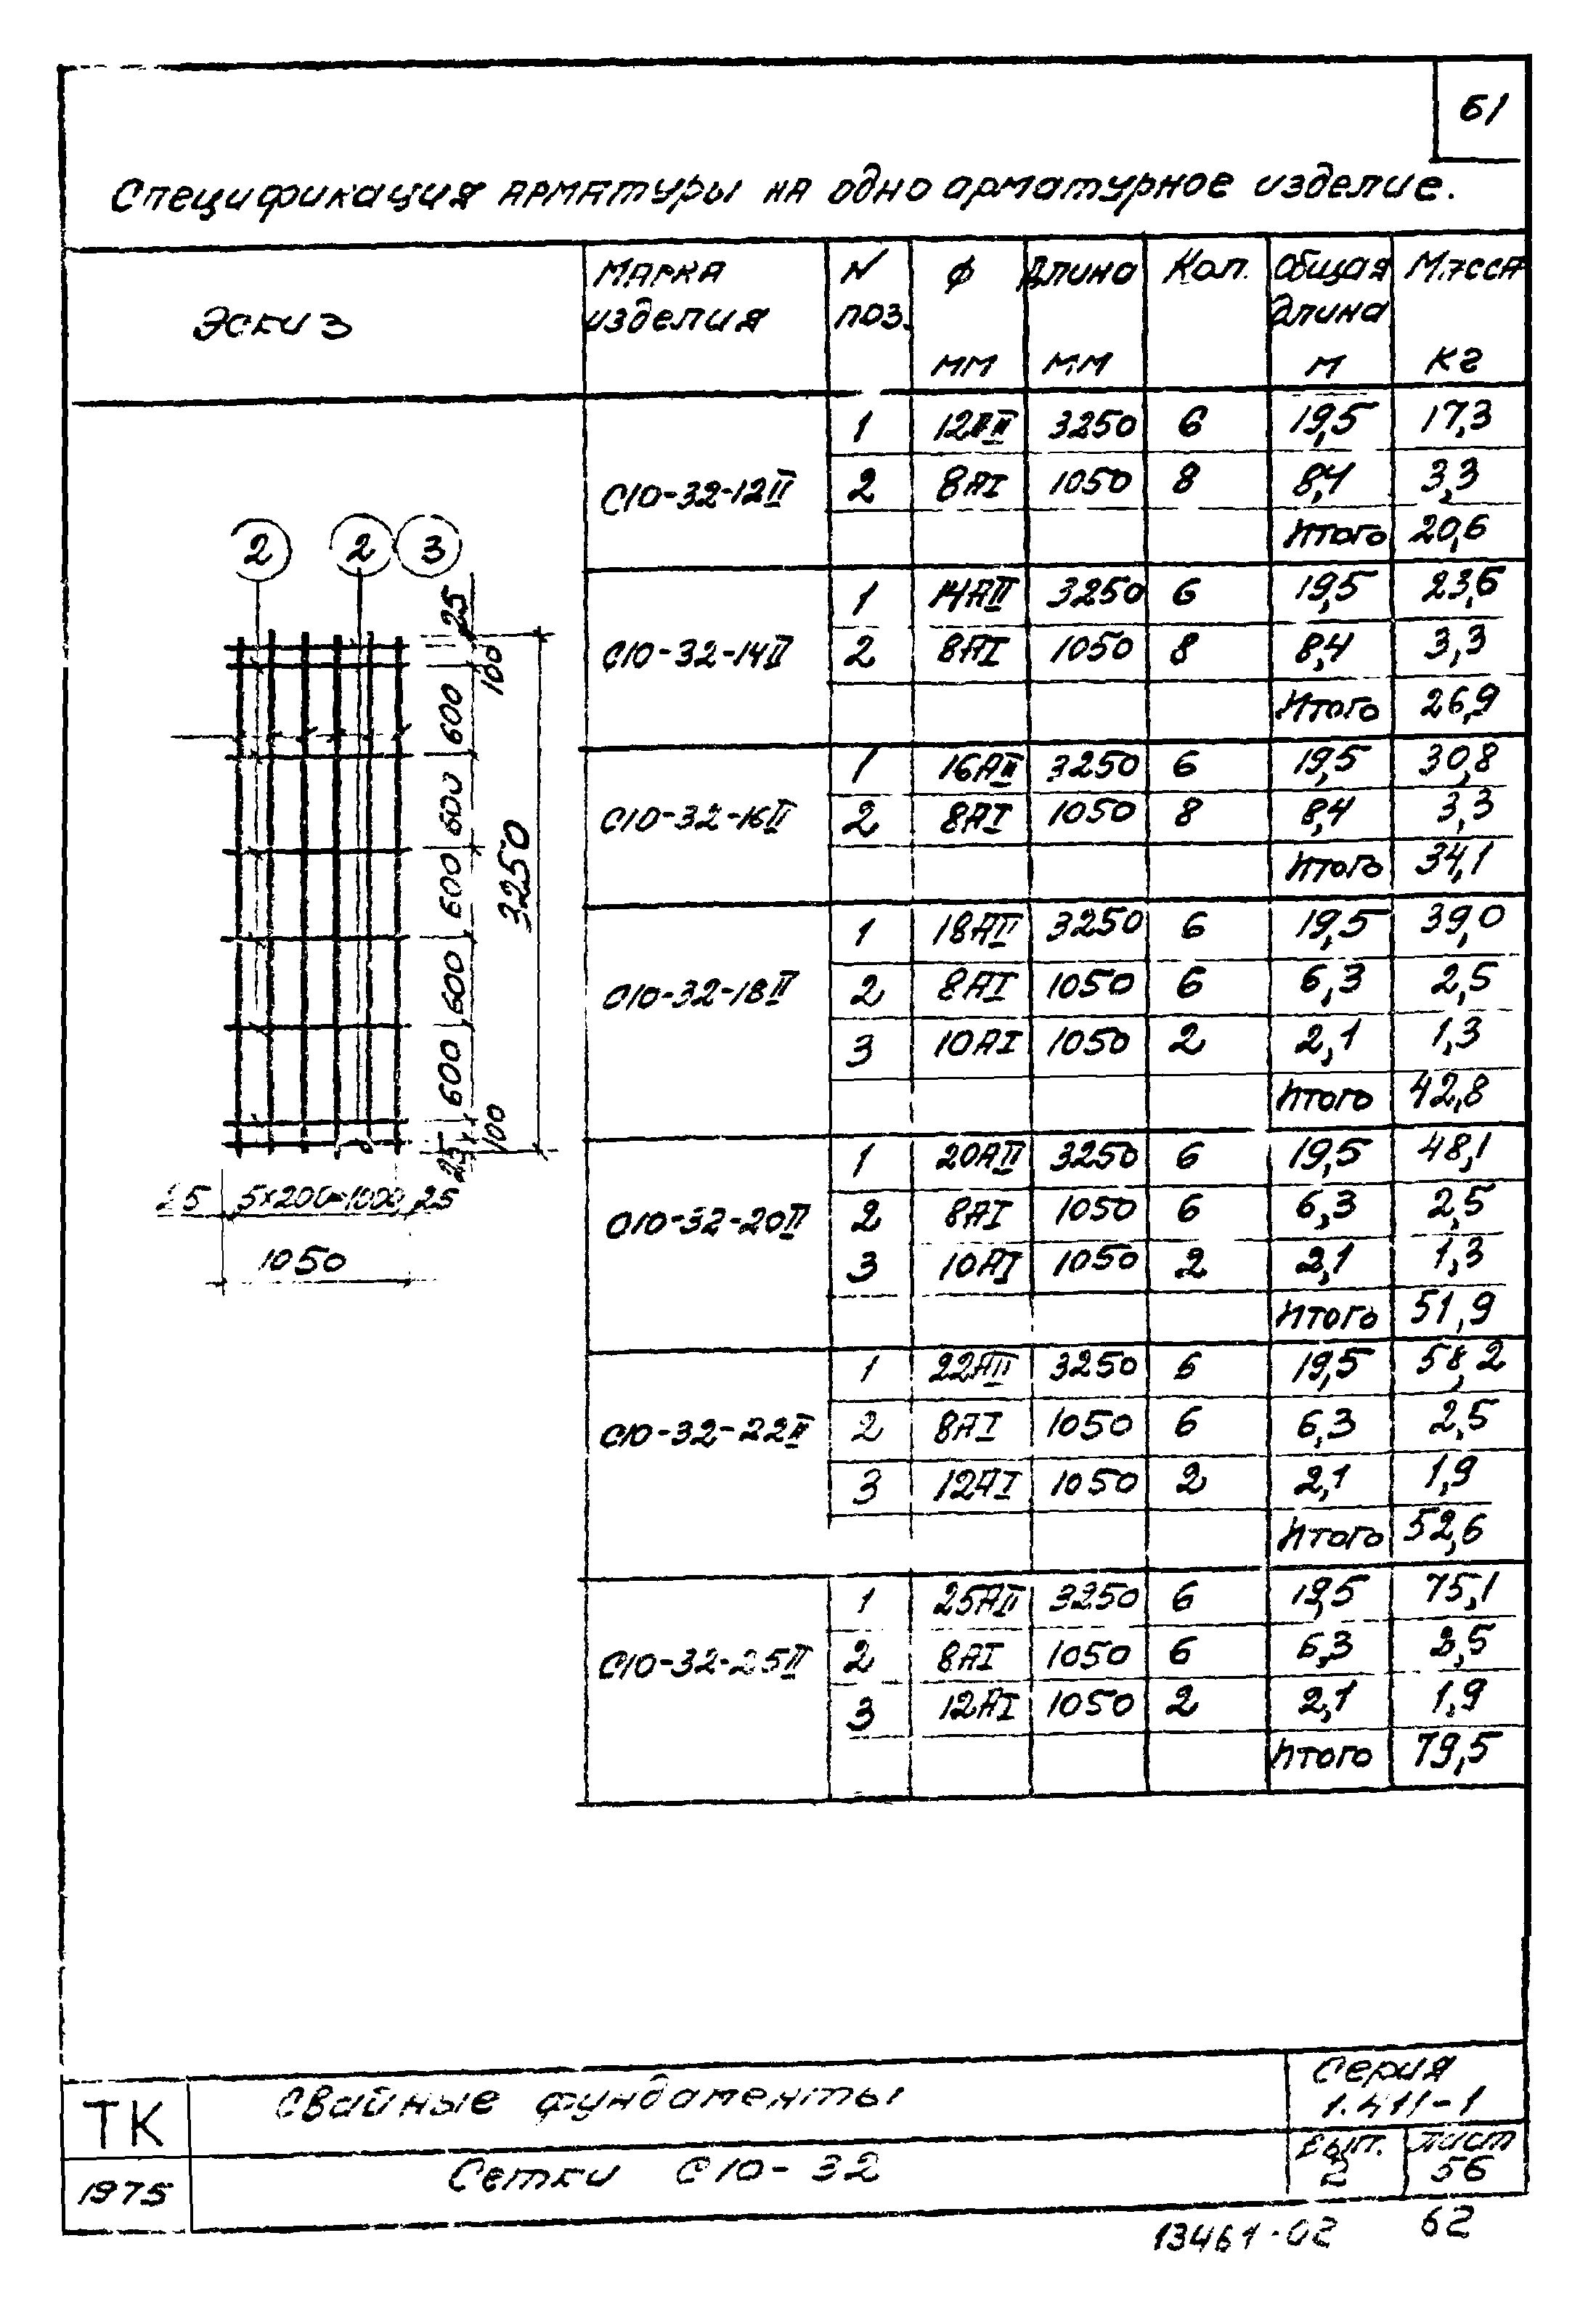 61
Спецификация арматуры на одно арматурное изделие.
Эскиз
Марка изделия
N поз.
ф мм
Длина мм
Кол.
Общая длина м
Масса кг
С10-32-12II
1 12АII 3250 6 19,5 17,3
2 8АI 1050 8 8,4 3,3
Итого 20,6
С10-32-14II
1 14АII 3250 6 19,5 23,6
2 8АI 1050 8 8,4 3,3
Итого 26,9
С10-32-16II
1 16АII 3250 6 19,5 30,8
2 8АI 1050 8 8,4 3,3
Итого 34,1
С10-32-18II
1 18АII 3250 6 19,5 39,0
2 8АI 1050 6 6,3 2,5
3 10АI 1050 2 2,1 1,3
Итого 42,8
С10-32-20II
1 20АII 3250 6 19,5 48,1
2 8АI 1050 6 6,3 2,5
3 10АI 1050 2 2,1 1,3
Итого 51,9
С10-32-22II
1 22АII 3250 6 19,5 58,2
2 8АI 1050 6 6,3 2,5
3 12АI 1050 2 2,1 1,9
Итого 52,6
С10-32-25II
1 25АII 3250 6 19,5 75,1
2 8АI 1050 6 6,3 2,5
3 12АI 1050 2 2,1 1,9
Итого 79,5
2 2 3
25
100
600
600
600
600
600
100
25
3250
25 5х200=1000 25
1050
ТК
1975
Свайные фундаменты
Сетки С10-32
Серия
1.411-1
Вып. 2
Лист 56
13461-02 62